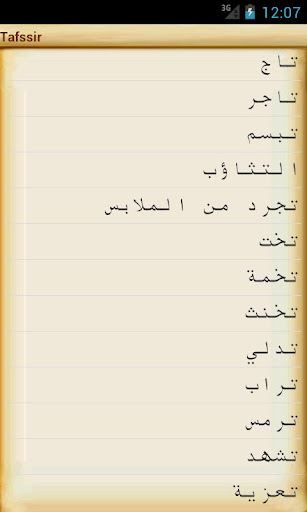 3G 12:07
Tafssir
تاج
تاجر
تبسم
التثاؤب
تجرد من الملابس
تخت
تخمة
تخنث
تدلي
تراب
ترمس
تشهد
تعزية